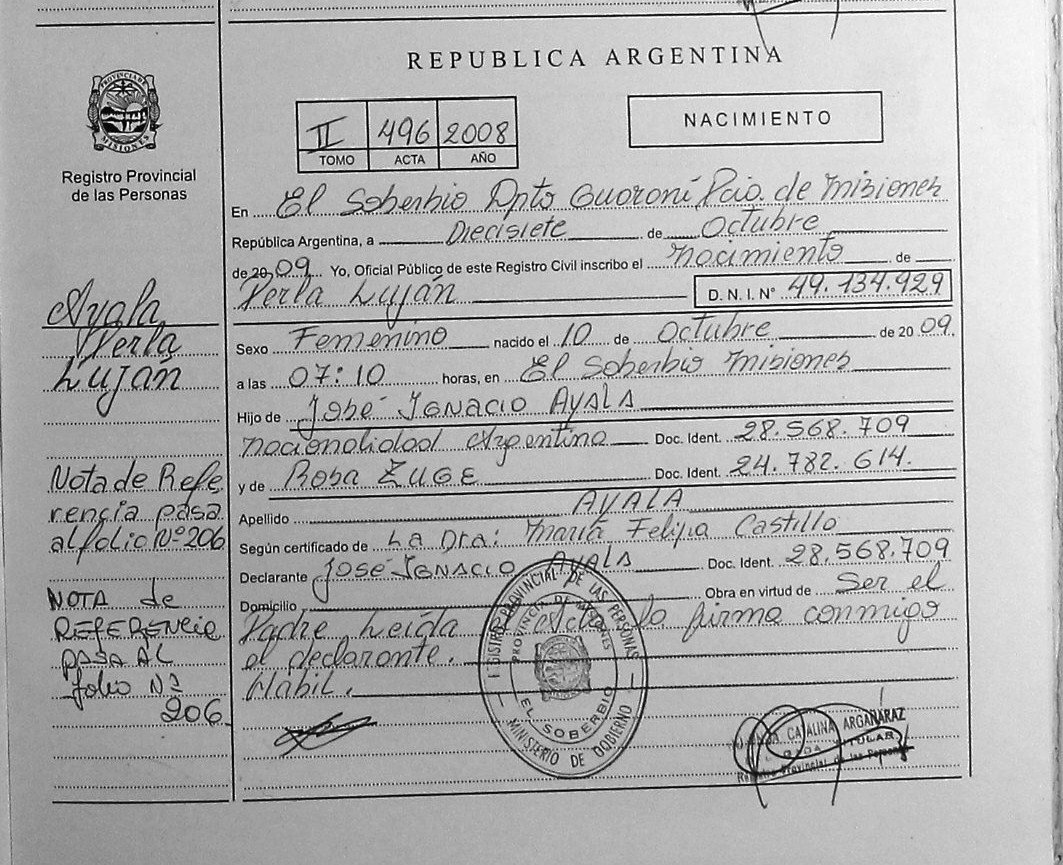 REPUBLICA ARGENTINA
PROVINCIA DE
MISIONES
Registro Provincial
de las Personas
II 496 2008
TOMO ACTA AÑO
NACIMIENTO
En El Soberbio Dpto Guaraní Pcia. de Misiones
República Argentina, a Diecisiete de Octubre
de 2009 Yo, Oficial Público de este Registro Civil inscribo el nacimiento de
Perla Luján D. N. I. Nº 49.134.929
Ayala
Perla
Luján
Sexo Femenino nacido el 10 de Octubre de 2009.
a las 07:10 horas, en El Soberbio Misiones
Hijo de José Ignacio AYALA
nacionalidad Argentina Doc. Ident. 28.568.709
y de Rosa ZUGE Doc. Ident. 24.782.614.
Apellido AYALA
Según certificado de La Dra: María Felipa Castillo
Declarante José Ignacio AYALA Doc. Ident. 28,568.709
Domicilio Obra en virtud de Ser el
Padre, Leída el acta la firma conmigo
el declarante.
Hábil.
Nota de Refe
rencia pasa
al folio Nº 206
NOTA de
REFERENCIA
PASA AL
folio Nº
206
REGISTRO PROVINCIAL DE LAS PERSONAS
PROVINCIA DE MISIONES
EL SOBERBIO
MINISTERIO DE GOBIERNO
CATALINA ARGAÑARAZ
TITULAR
Registro Provincial de las Personas